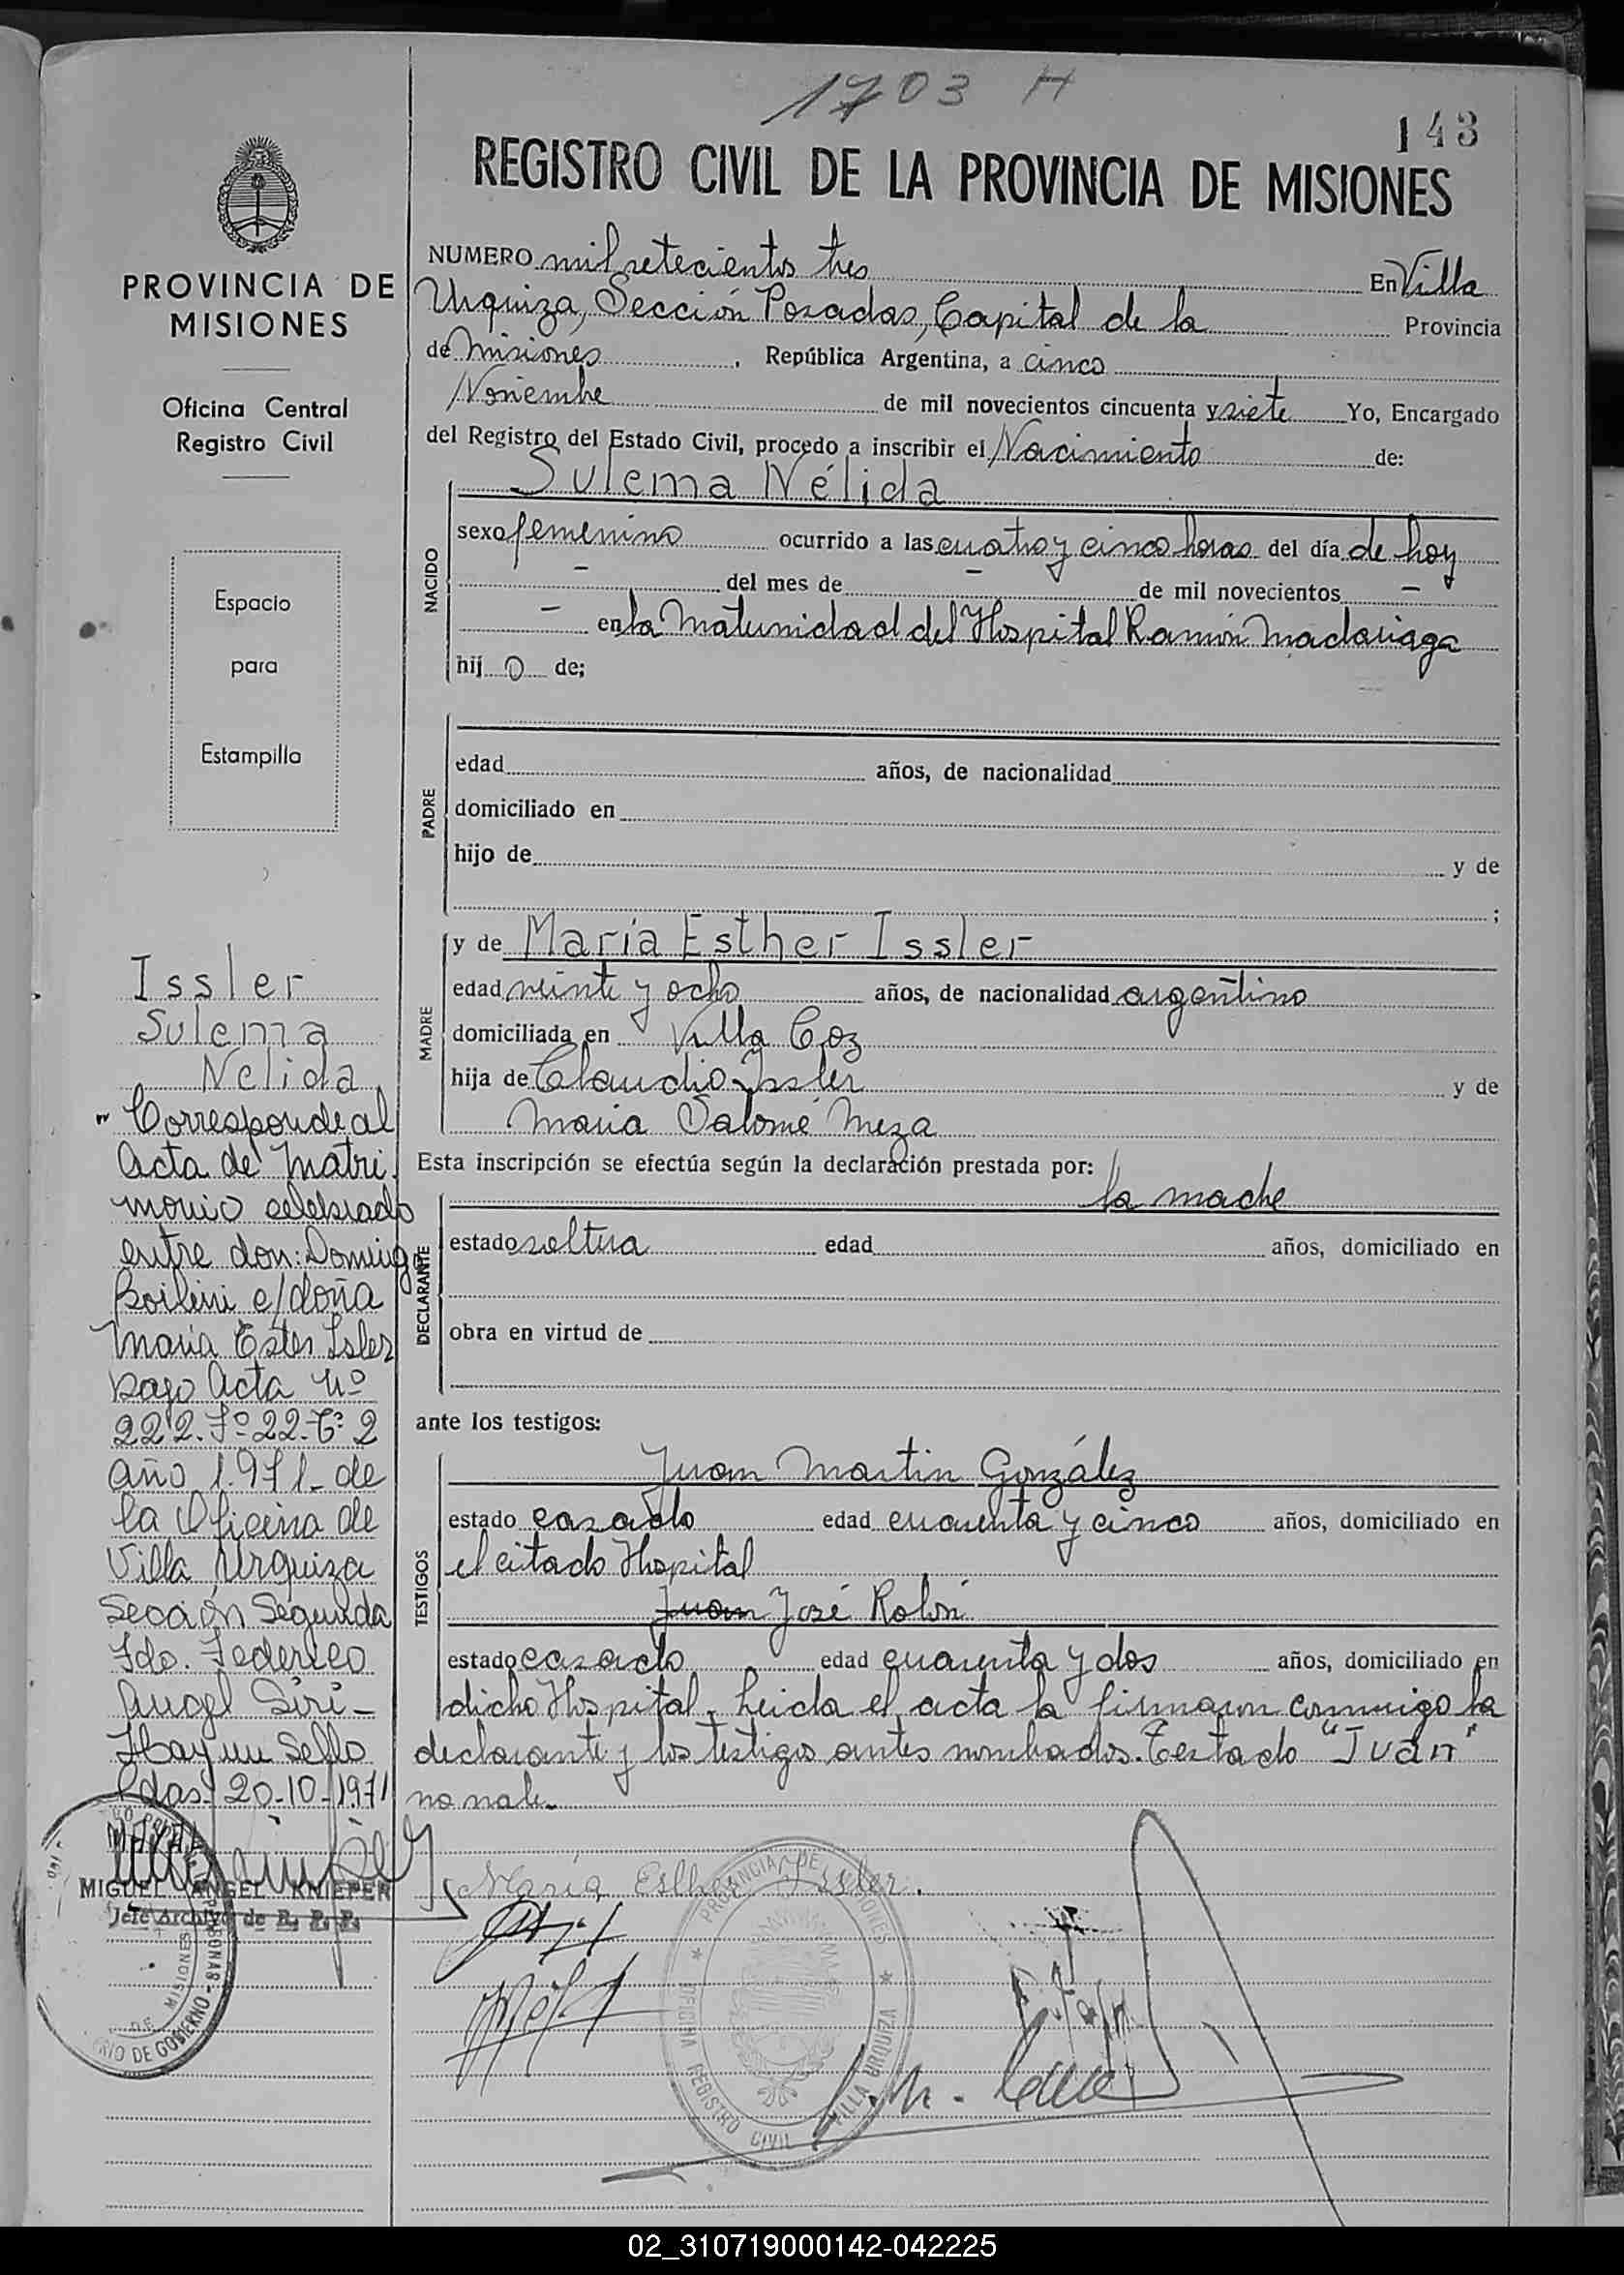 1703 H
143
REGISTRO CIVIL DE LA PROVINCIA DE MISIONES
PROVINCIA DE
MISIONES
Oficina Central
Registro Civil
Espacio
para
Estampilla
Issler
Sulema
Nelida
Corresponde al
Acta de Matri-
monio celebrado
entre don: Domingo
c/doña
Maria Ester Isler
bajo Acta Nº
222. Fº 22. Tº 2
año 1.971- de
la Oficina de
Villa Urquiza
Sección Segunda
Fdo. Federico
Angel Siri-
Hay un Sello
Pdas. 20-10-1971
MIGUEL ANGEL KNIEPER
Jefe Archivo de R. P. P.
NUMERO mil setecientos tres En Villa
Urquiza, Sección Posadas, Capital de la Provincia
de Misiones, República Argentina, a cinco
Noviembre de mil novecientos cincuenta y siete Yo, Encargado
del Registro del Estado Civil, procedo a inscribir el Nacimiento de:
NACIDO
Sulema Nélida
sexo femenino ocurrido a las cuatro y cinco horas del día de hoy
- del mes de - de mil novecientos -
- en la Maternidad del Hospital Ramón Madariaga
hij o de;
PADRE
edad años, de nacionalidad
domiciliado en
hijo de y de
;
MADRE
y de María Esther Issler
edad veinte y ocho años, de nacionalidad argentino
domiciliada en Villa Coz
hija de Claudio Issler y de
Maria Salomé Meza
Esta inscripción se efectúa según la declaración prestada por:
DECLARANTE
la madre
estado soltera edad años, domiciliado en
obra en virtud de
ante los testigos:
TESTIGOS
Juan Martin González
estado casado edad cuarenta y cinco años, domiciliado en
el citado Hospital
Juan José Rolón
estado casado edad cuarenta y dos años, domiciliado en
dicho Hospital. Leida el acta la firmaron conmigo la
declarante y los testigos antes nombrados. Testado "Juan"
no vale.
María Esther Issler.
PROVINCIA DE MISIONES
OFICINA REGISTRO CIVIL VILLA URQUIZA
02_310719000142-042225